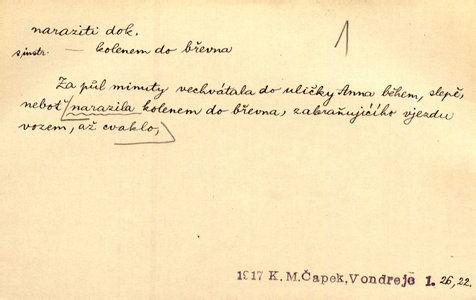 naraziti dok.
s instr. — kolenem do břevna
1
Za půl minuty vechvátala do uličky Anna během, slepě,
neboť narazila kolenem do břevna, zabraňujícího vjezdu
vozem, až cvaklo,
1917 K.M.Čapek, Vondrejc 1. 26, 22.